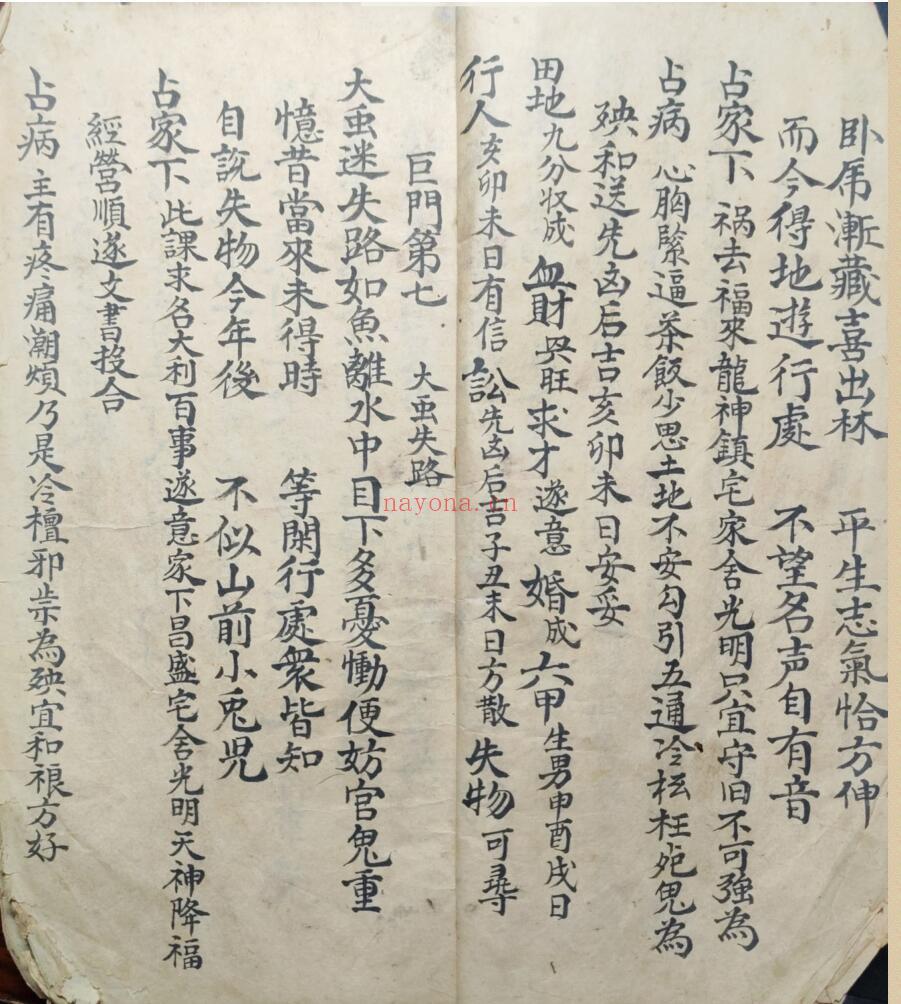 卧虎漸藏喜出林　平生志氣恰方伸
而今得地遊行處　不望名声自有音
占家下　祸去福來龍神鎮宅家舍光明只宜守旧不可強為
占病　心胸緊逼茶飯少思土地不安勾引五通冷坛枉死鬼為
殃和送先凶后吉亥卯未日安妥
田地九分收成　血財興旺　求才遂意　婚成　六甲生男申酉戌日
行人亥卯未日有信　訟先凶后吉子丑未日方散　失物可尋
巨門第七　大虫失路
大虫迷失路如魚離水中目下多憂慟便妨官鬼重
憶昔當來未得時　等閑行處衆皆知
自説失物今年後　不似山前小兎児
占家下此課求名大利百事遂意家下昌盛宅舍光明天神降福
經營順遂文書投合
占病　主有疼痛潮煩乃是冷檀邪祟為殃宜和禳方好
nayona.cn